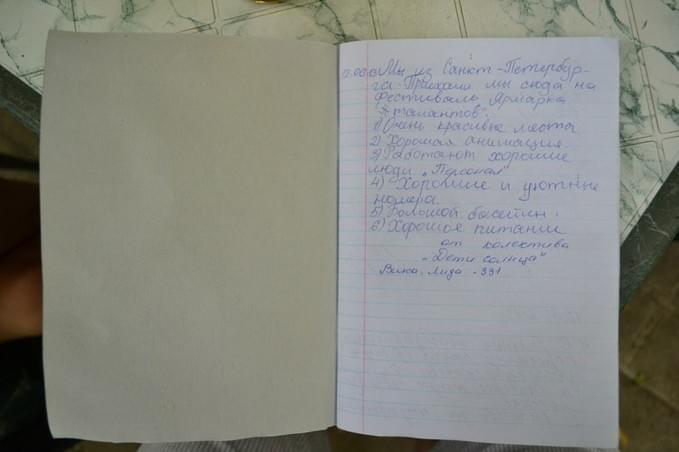 Мы из Санкт-Петербур-
га. Приехали мы сюда на
Фестиваль Ярмарка
талантов".
1) Очень красивые места
2) Хорошая анимация.
3) Работают хорошие
люди „Персонал"
4) Хорошие и уютные
номера.
5) Большой басейн.
6) Хорошое питание
от колектива
„Дети солнца"
Вика, Лида - 331